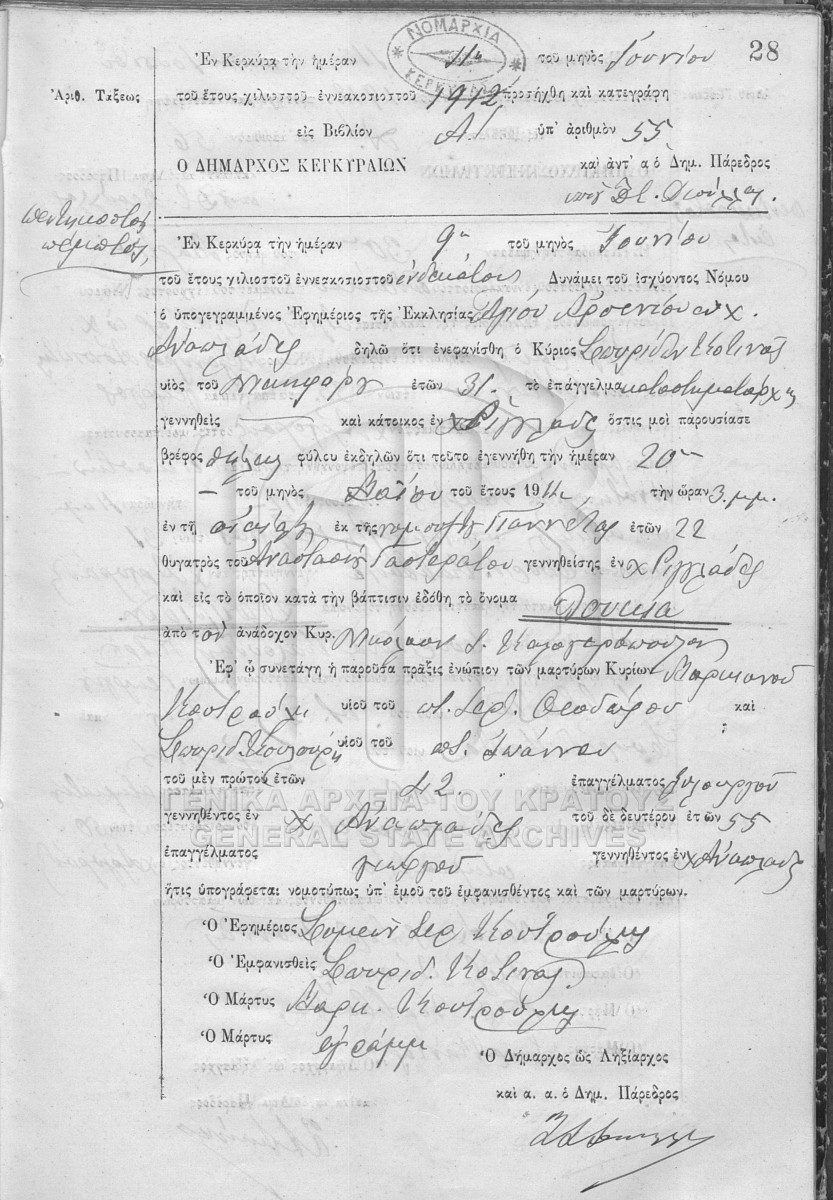 ΝΟΜΑΡΧΙΑ
ΚΕΡΚΥΡΑΣ
28
Ἐν Κερκύρᾳ τὴν ἡμέραν 11η τοῦ μηνὸς Ἰουνίου
Ἀριθ. Τάξεως
τοῦ ἔτους χιλιοστοῦ ἐννεακοσιοστοῦ 1912 προσήχθη καὶ κατεγράφη
εἰς Βιβλίον Α ὑπ' ἀριθμὸν 55
Ο ΔΗΜΑΡΧΟΣ ΚΕΡΚΥΡΑΙΩΝ καὶ ἀντ' α ὁ Δημ. Πάρεδρος
πεντηκοστὸς
πέμπτος
Ἐν Κερκύρᾳ τὴν ἡμέραν 9η τοῦ μηνὸς Ἰουνίου
τοῦ ἔτους χιλιοστοῦ ἐννεακοσιοστοῦ ἑνδεκάτου Δυνάμει τοῦ ἰσχύοντος Νόμου
ὁ ὑπογεγραμμένος Ἐφημέριος τῆς Ἐκκλησίας Ἁγίου Ἀρσενίου χ.
Ἀναπλάδες δηλῶ ὅτι ἐνεφανίσθη ὁ Κύριος Σπυρίδων Κοτινᾶς
υἱὸς τοῦ ἐτῶν 31 τὸ ἐπάγγελμα καταστηματάρχης
γεννηθεὶς — καὶ κάτοικος ἐν χ Ῥιγγλάδες ὅστις μοὶ παρουσίασε
βρέφος θήλεως φύλου ἐκδηλῶν ὅτι τοῦτο ἐγεννήθη τὴν ἡμέραν 20
— τοῦ μηνὸς Μαΐου τοῦ ἔτους 1911 τὴν ὥραν 3 μ.μ.
ἐν τῇ οἰκίᾳ ἐκ τῆς Γιαννέτας ἐτῶν 22
θυγατρὸς τοῦ Ἀναστασίου Γαστεράτου γεννηθείσης ἐν χ Ῥιγγλάδες
καὶ εἰς τὸ ὁποῖον κατὰ τὴν βάπτισιν ἐδόθη τὸ ὄνομα Λουκία
ἀπὸ τὸν ἀνάδοχον Κυρ. Νικόλαον Σ. Καλογερόπουλον
Ἐφ' ᾧ συνετάγη ἡ παροῦσα πρᾶξις ἐνώπιον τῶν μαρτύρων Κυρίων Μαρκιανοῦ
Κουτρούλη υἱοῦ τοῦ Θεοδώρου καὶ
Σπυρίδ. υἱοῦ τοῦ Ἰωάννου
τοῦ μὲν πρώτου ἐτῶν 42 ἐπαγγέλματος ξυλουργοῦ
ΓΕΝΙΚΑ ΑΡΧΕΙΑ ΤΟΥ ΚΡΑΤΟΥΣ
γεννηθέντος ἐν χ Ἀναπλάδες τοῦ δὲ δευτέρου ἐτῶν 55
GENERAL STATE ARCHIVES
ἐπαγγέλματος γεωργοῦ γεννηθέντος ἐν χ Ἀναπλάδες
ἥτις ὑπογράφεται νομοτύπως ὑπ' ἐμοῦ τοῦ ἐμφανισθέντος καὶ τῶν μαρτύρων.
Ὁ Ἐφημέριος Κουτρούλης
Ὁ Ἐμφανισθεὶς Σπυρίδ. Κοτινᾶς
Ὁ Μάρτυς Μαρκ. Κουτρούλης
Ὁ Μάρτυς ἀγράμμ
Ὁ Δήμαρχος ὡς Ληξίαρχος
καὶ α. α. ὁ Δημ. Πάρεδρος